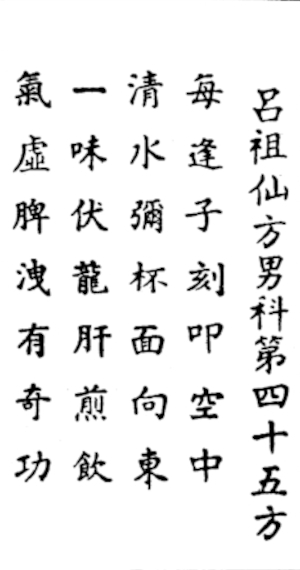 呂祖仙方男科第四十五方
每逢子刻叩空中
清水彌杯面向東
一味伏龍肝煎飲
氣虛脾洩有奇功